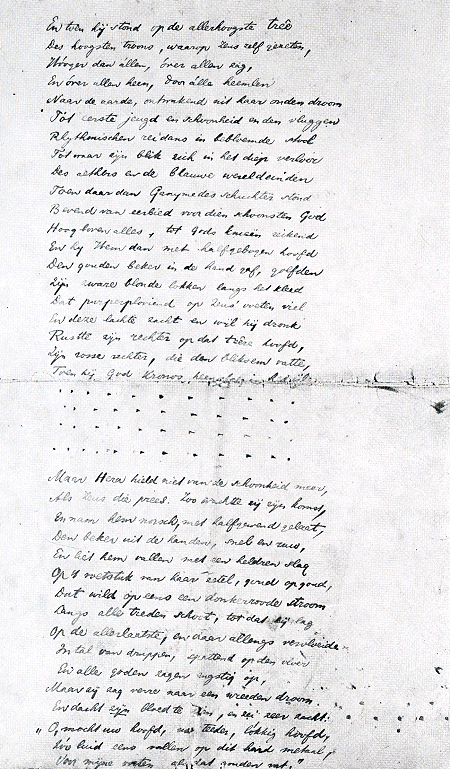 En toen hij stond op de allerhoogste treê
Des hoogsten troons, waarop Zeus zelf gezeten,
Hóoger dan állen, óver allen zag,
En óver allen heen, door álle heemlen
Naar de aarde, ontwakend uit haar ouden droom
Tót eerste jeugd en schoonheid en den vluggen
Rhythmischen reidans in bebloemde
Tót waar zijn blik zich in het diep verloor
Des aethers en de blauwe wereldeinden
Toen daar dan Ganymedes schuchter stond
Bevend van eerbied voor dien schoonsten God
Hoog boven alles, tot Gods knieën reikend
En hij Hem dan met halfgebogen hoofd
Den gouden beker in de hand gaf, golfden
Zijn zware blonde lokken langs het kleed
Dat purperplooiend op Zeus' voeten viel
En deze lachte zacht en wijl hij dronk
Rustte zijn rechter op dat teêre hoofd,
Zijn rosse rechter, die den bliksem vatte,
Toen hij God Kronos
Maar Hera hield niet van de schoonheid meer,
Als Zeus die prees. Zoo wachtte zij zijn komst,
En nam hem norsch, met halfgewend gelaat,
Den beker uit de handen, snel en ruw,
En liet hem vallen met een heldren slag
Op 't voetstuk van haar zetel, goud op goud,
Dat wild op eens een donkerroode stroom
Langs alle treden schoot, tot dat zij lag
Op de allerlaatste, en daar allengs vervloeide
In tal van druppen, spattend op den vloer
En alle goden zagen angstig op,
Maar zij zag verre naar een wreeden droom
En dacht zijn bloed te zien, en zei zeer zacht:
„O, mocht uw hoofd, uw teeder, lokkig hoofd,
Zóo luid eens vallen op dit hard metaal,
Voor mijne voeten als dat gouden vat."